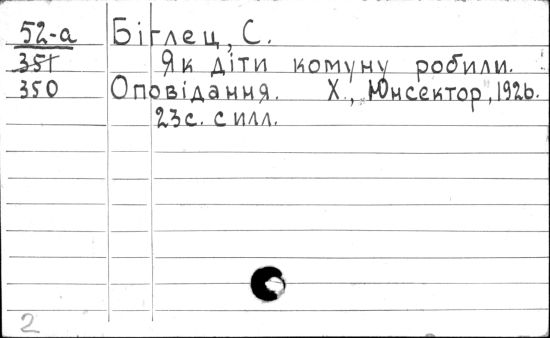 52-а Біглец, С.
351 Як діти комуну робили.
350 Оповідання. Х., Юнсектор, 1926.
23с. с илл.
2